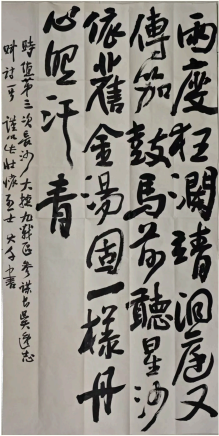 两度狂澜靖洞庭又
传笳鼓马前听星沙
依旧金汤固一样丹
心照汗青
时值第三次长沙大捷九战区参谋长吴逸志